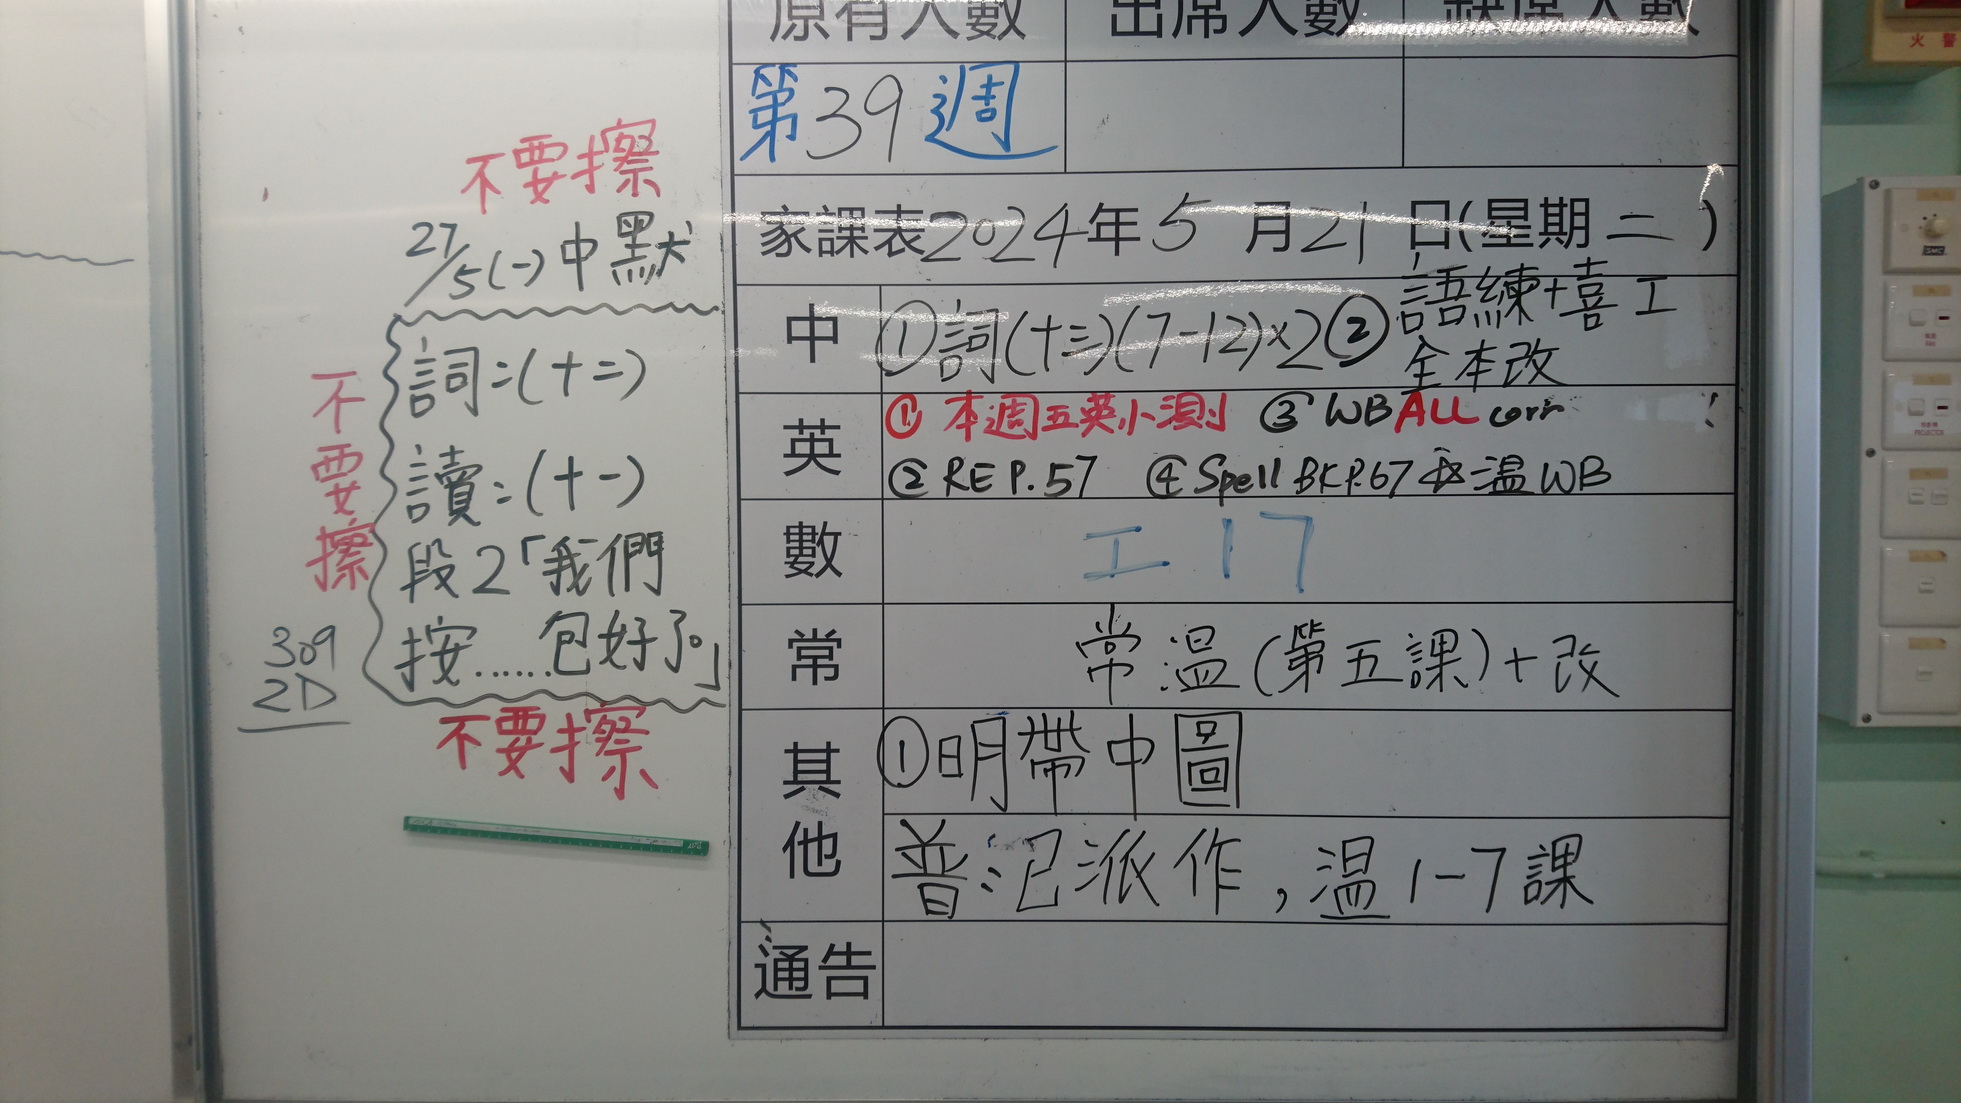 原有人數 出席人數 缺席人數
第39週
家課表2024年5月21日(星期二)
中 ①詞(十三)(7-12)×2 ②語練+喜工
全本改
英 ①本週五英小測 ③WB ALL corr !
② RE P.57 ④ Spell BK P.67 溫WB
數 工17
常 常溫(第五課)+改
其他 ①明帶中圖
普:派作,溫1-7課
通告
不要擦
27/5(一)中默
詞:(十二)
讀:(十一)
段2「我們
按……包好了。」
不要擦
不要擦
309
2D
火警